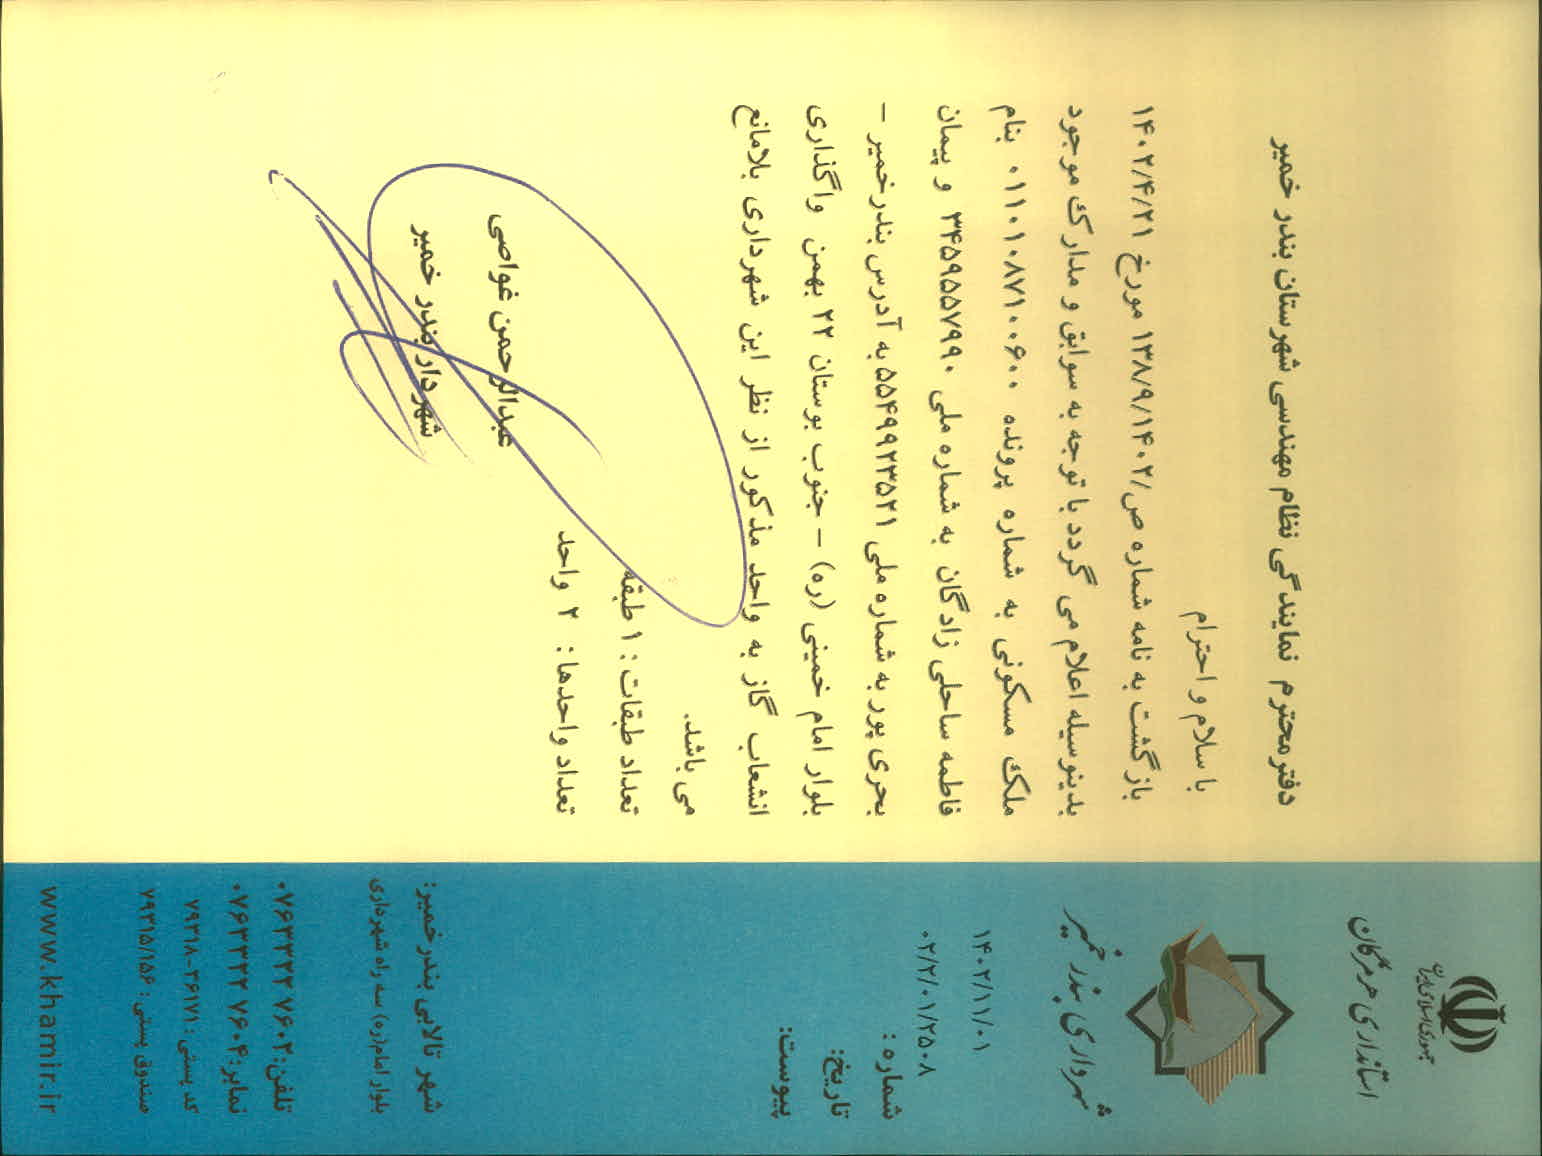 جمهوری اسلامی ایران
استانداری هرمزگان
شهرداری بندر خمیر
۱۴۰۲/۱۱/۰۱
۰۲/۲/۰۱/۲۵۰۸
شماره :
تاریخ:
پیوست:
دفتر محترم نمایندگی نظام مهندسی شهرستان بندر خمیر
با سلام و احترام
بازگشت به نامه شماره ص/۱۳۸۹/۱۴۰۲ مورخ ۱۴۰۲/۴/۲۱
بدینوسیله اعلام می گردد با توجه به سوابق و مدارک موجود
ملک مسکونی به شماره پرونده ۰۱۱۰۱۰۸۷۱۰۰۶۰۰ بنام
فاطمه ساحلی زادگان به شماره ملی ۳۴۵۹۵۵۷۹۹۰ و پیمان
بحری پور به شماره ملی ۵۵۴۹۹۲۳۵۲۱ به آدرس بندرخمیر –
بلوار امام خمینی (ره) – جنوب بوستان ۲۲ بهمن واگذاری
انشعاب گاز به واحد مذکور از نظر این شهرداری بلامانع
می باشد.
تعداد طبقات: ۱ طبقه
تعداد واحدها: ۲ واحد
عبدالرحمن غواصی
شهردار بندر خمیر
شهر تالابی بندرخمیر:
بلوار امام(ره) سه راه شهرداری
تلفن: ۰۷۶۳۳۲۲۷۶۰۲
نمابر: ۰۷۶۳۳۲۲۷۶۰۴
کد پستی: ۷۹۳۱۸-۳۶۱۷۱
صندوق پستی: ۷۹۳۱۵/۱۵۶
www.khamir.ir